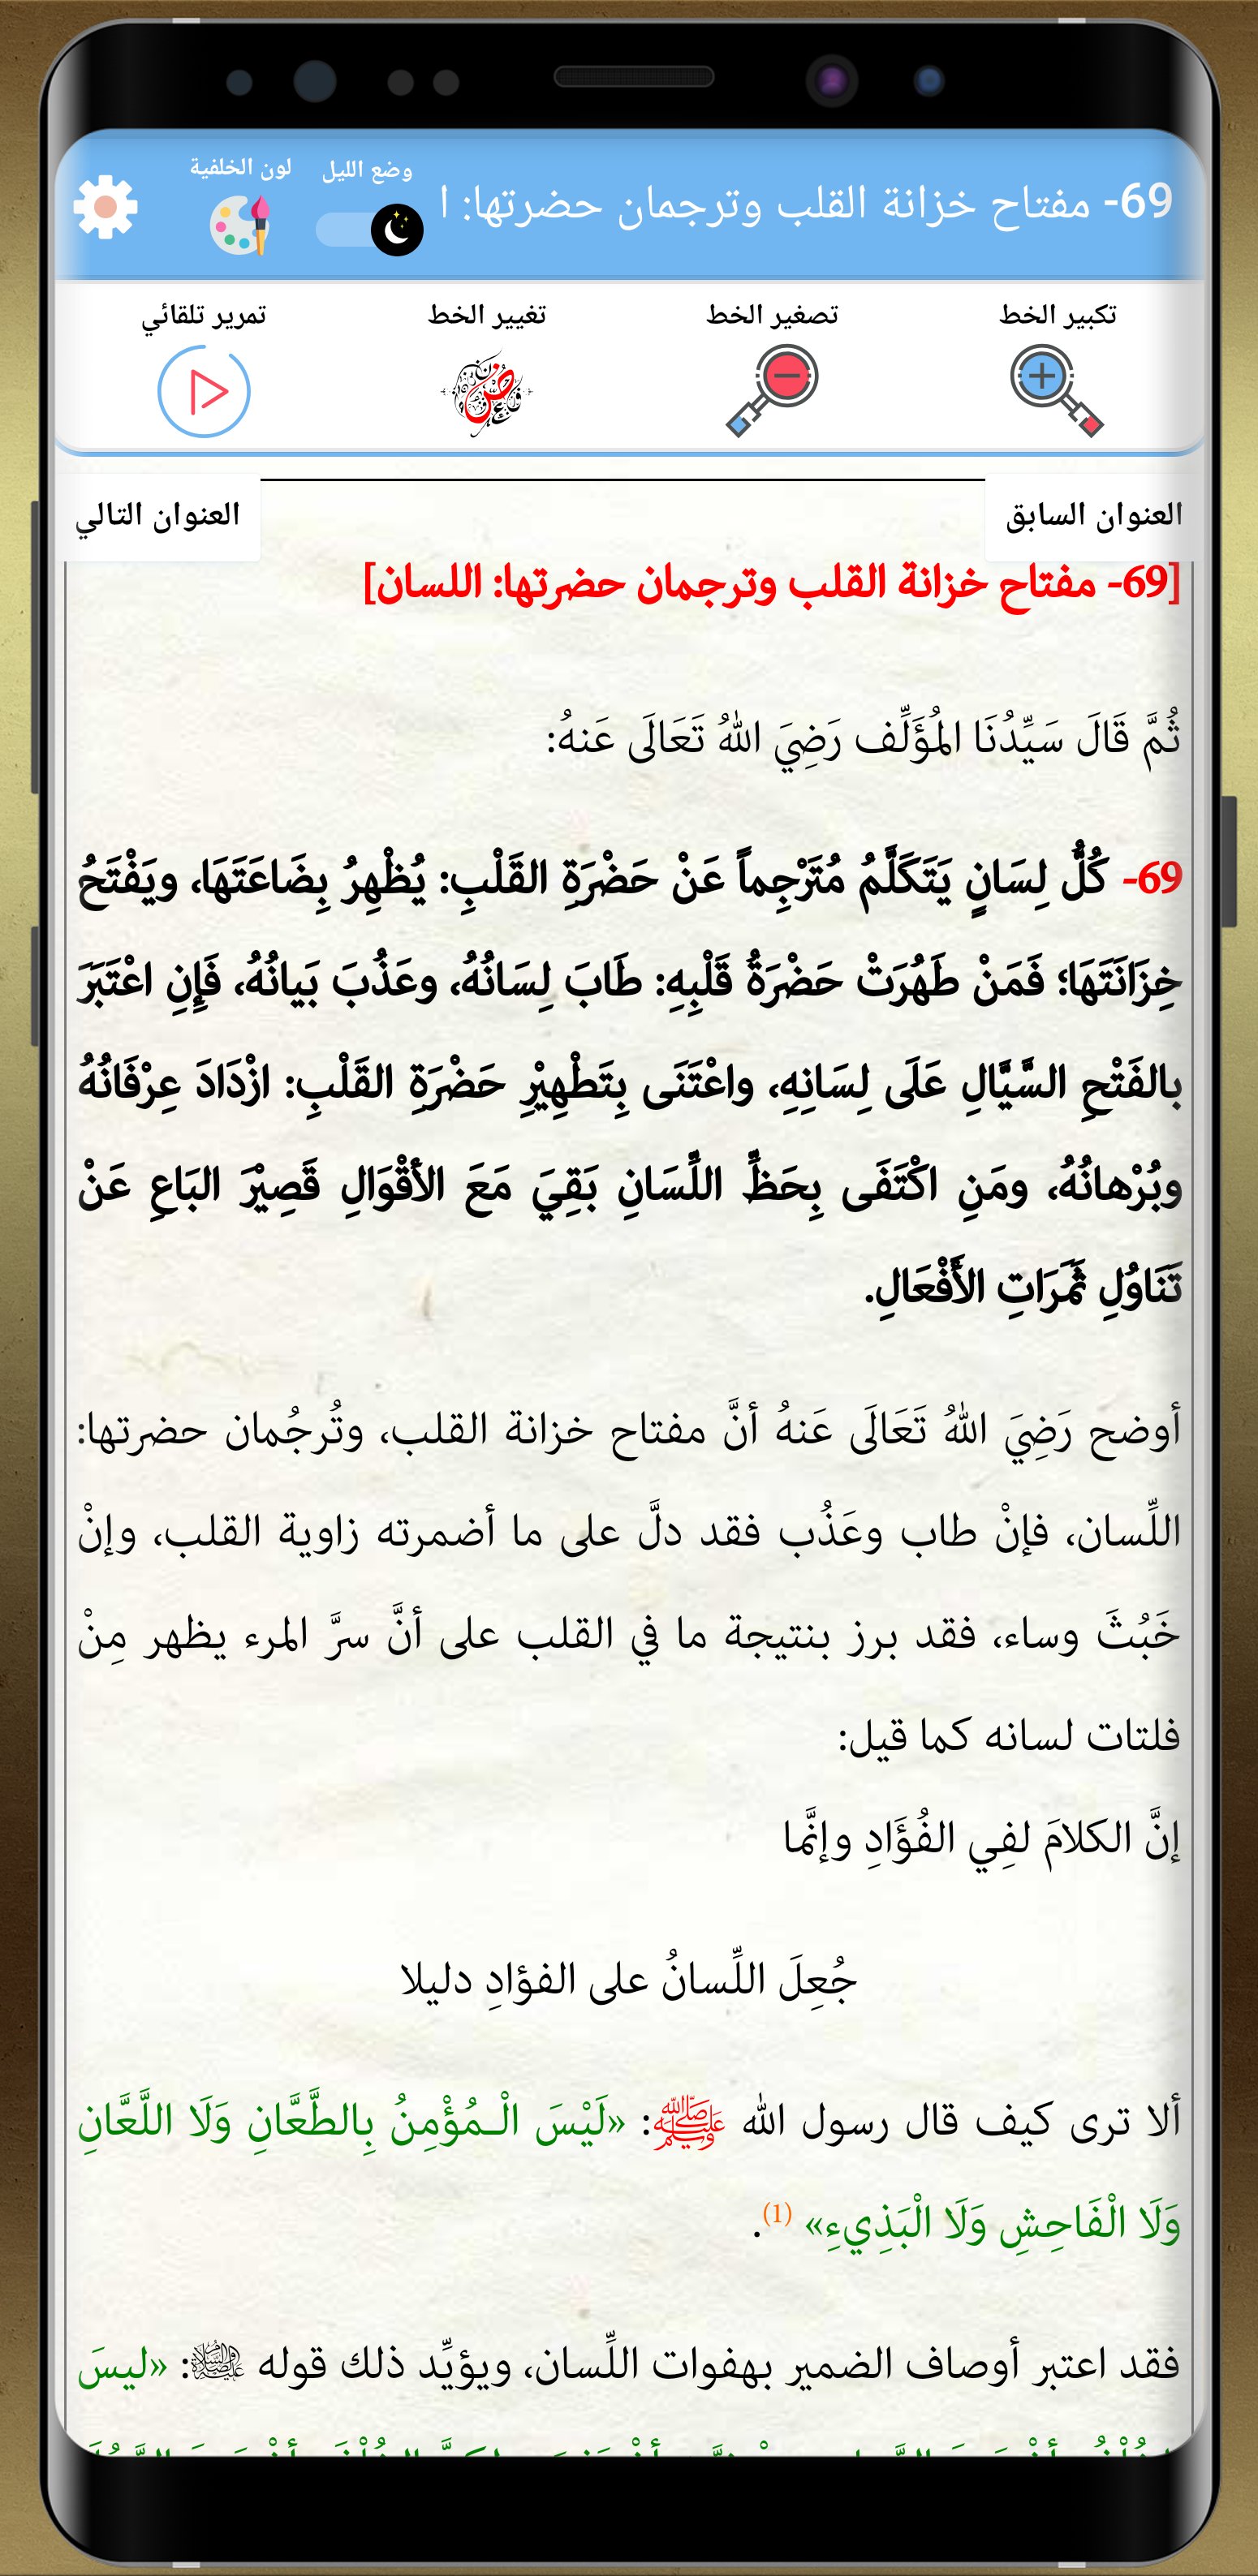 69- مفتاح خزانة القلب وترجمان حضرتها: ا
وضع الليل
لون الخلفية
تكبير الخط
تصغير الخط
تغيير الخط
تمرير تلقائي
العنوان السابق
العنوان التالي
[69- مفتاح خزانة القلب وترجمان حضرتها: اللسان]
ثُمَّ قَالَ سَيِّدُنَا المُؤَلِّف رَضِيَ اللهُ تَعَالَى عَنهُ:
69- كُلُّ لِسَانٍ يَتَكَلَّمُ مُتَرْجِماً عَنْ حَضْرَةِ القَلْبِ: يُظْهِرُ بِضَاعَتَهَا، ويَفْتَحُ
خِزَانَتَهَا؛ فَمَنْ طَهُرَتْ حَضْرَةُ قَلْبِهِ: طَابَ لِسَانُهُ، وعَذُبَ بَيانُهُ، فَإِنِ اعْتَبَرَ
بالفَتْحِ السَّيَّالِ عَلَى لِسَانِهِ، واعْتَنَى بِتَطْهِيْرِ حَضْرَةِ القَلْبِ: ازْدَادَ عِرْفَانُهُ
وبُرْهانُهُ، ومَنِ اكْتَفَى بِحَظِّ اللِّسَانِ بَقِيَ مَعَ الأَقْوَالِ قَصِيْرَ البَاعِ عَنْ
تَنَاوُلِ ثَمَرَاتِ الأَفْعَالِ.
أوضح رَضِيَ اللهُ تَعَالَى عَنهُ أنَّ مفتاح خزانة القلب، وتُرجُمان حضرتها:
اللِّسان، فإنْ طاب وعَذُب فقد دلَّ على ما أضمرته زاوية القلب، وإنْ
خَبُثَ وساء، فقد برز بنتيجة ما في القلب على أنَّ سرَّ المرء يظهر مِنْ
فلتات لسانه كما قيل:
إنَّ الكلامَ لفِي الفُؤَادِ وإنَّما
جُعِلَ اللِّسانُ على الفؤادِ دليلا
ألا ترى كيف قال رسول الله ﷺ: «لَيْسَ الْـمُؤْمِنُ بِالطَّعَّانِ وَلَا اللَّعَّانِ
وَلَا الْفَاحِشِ وَلَا الْبَذِيءِ» (1).
فقد اعتبر أوصاف الضمير بهفوات اللِّسان، ويؤيِّد ذلك قوله عليه الصلاة والسلام: «ليسَ